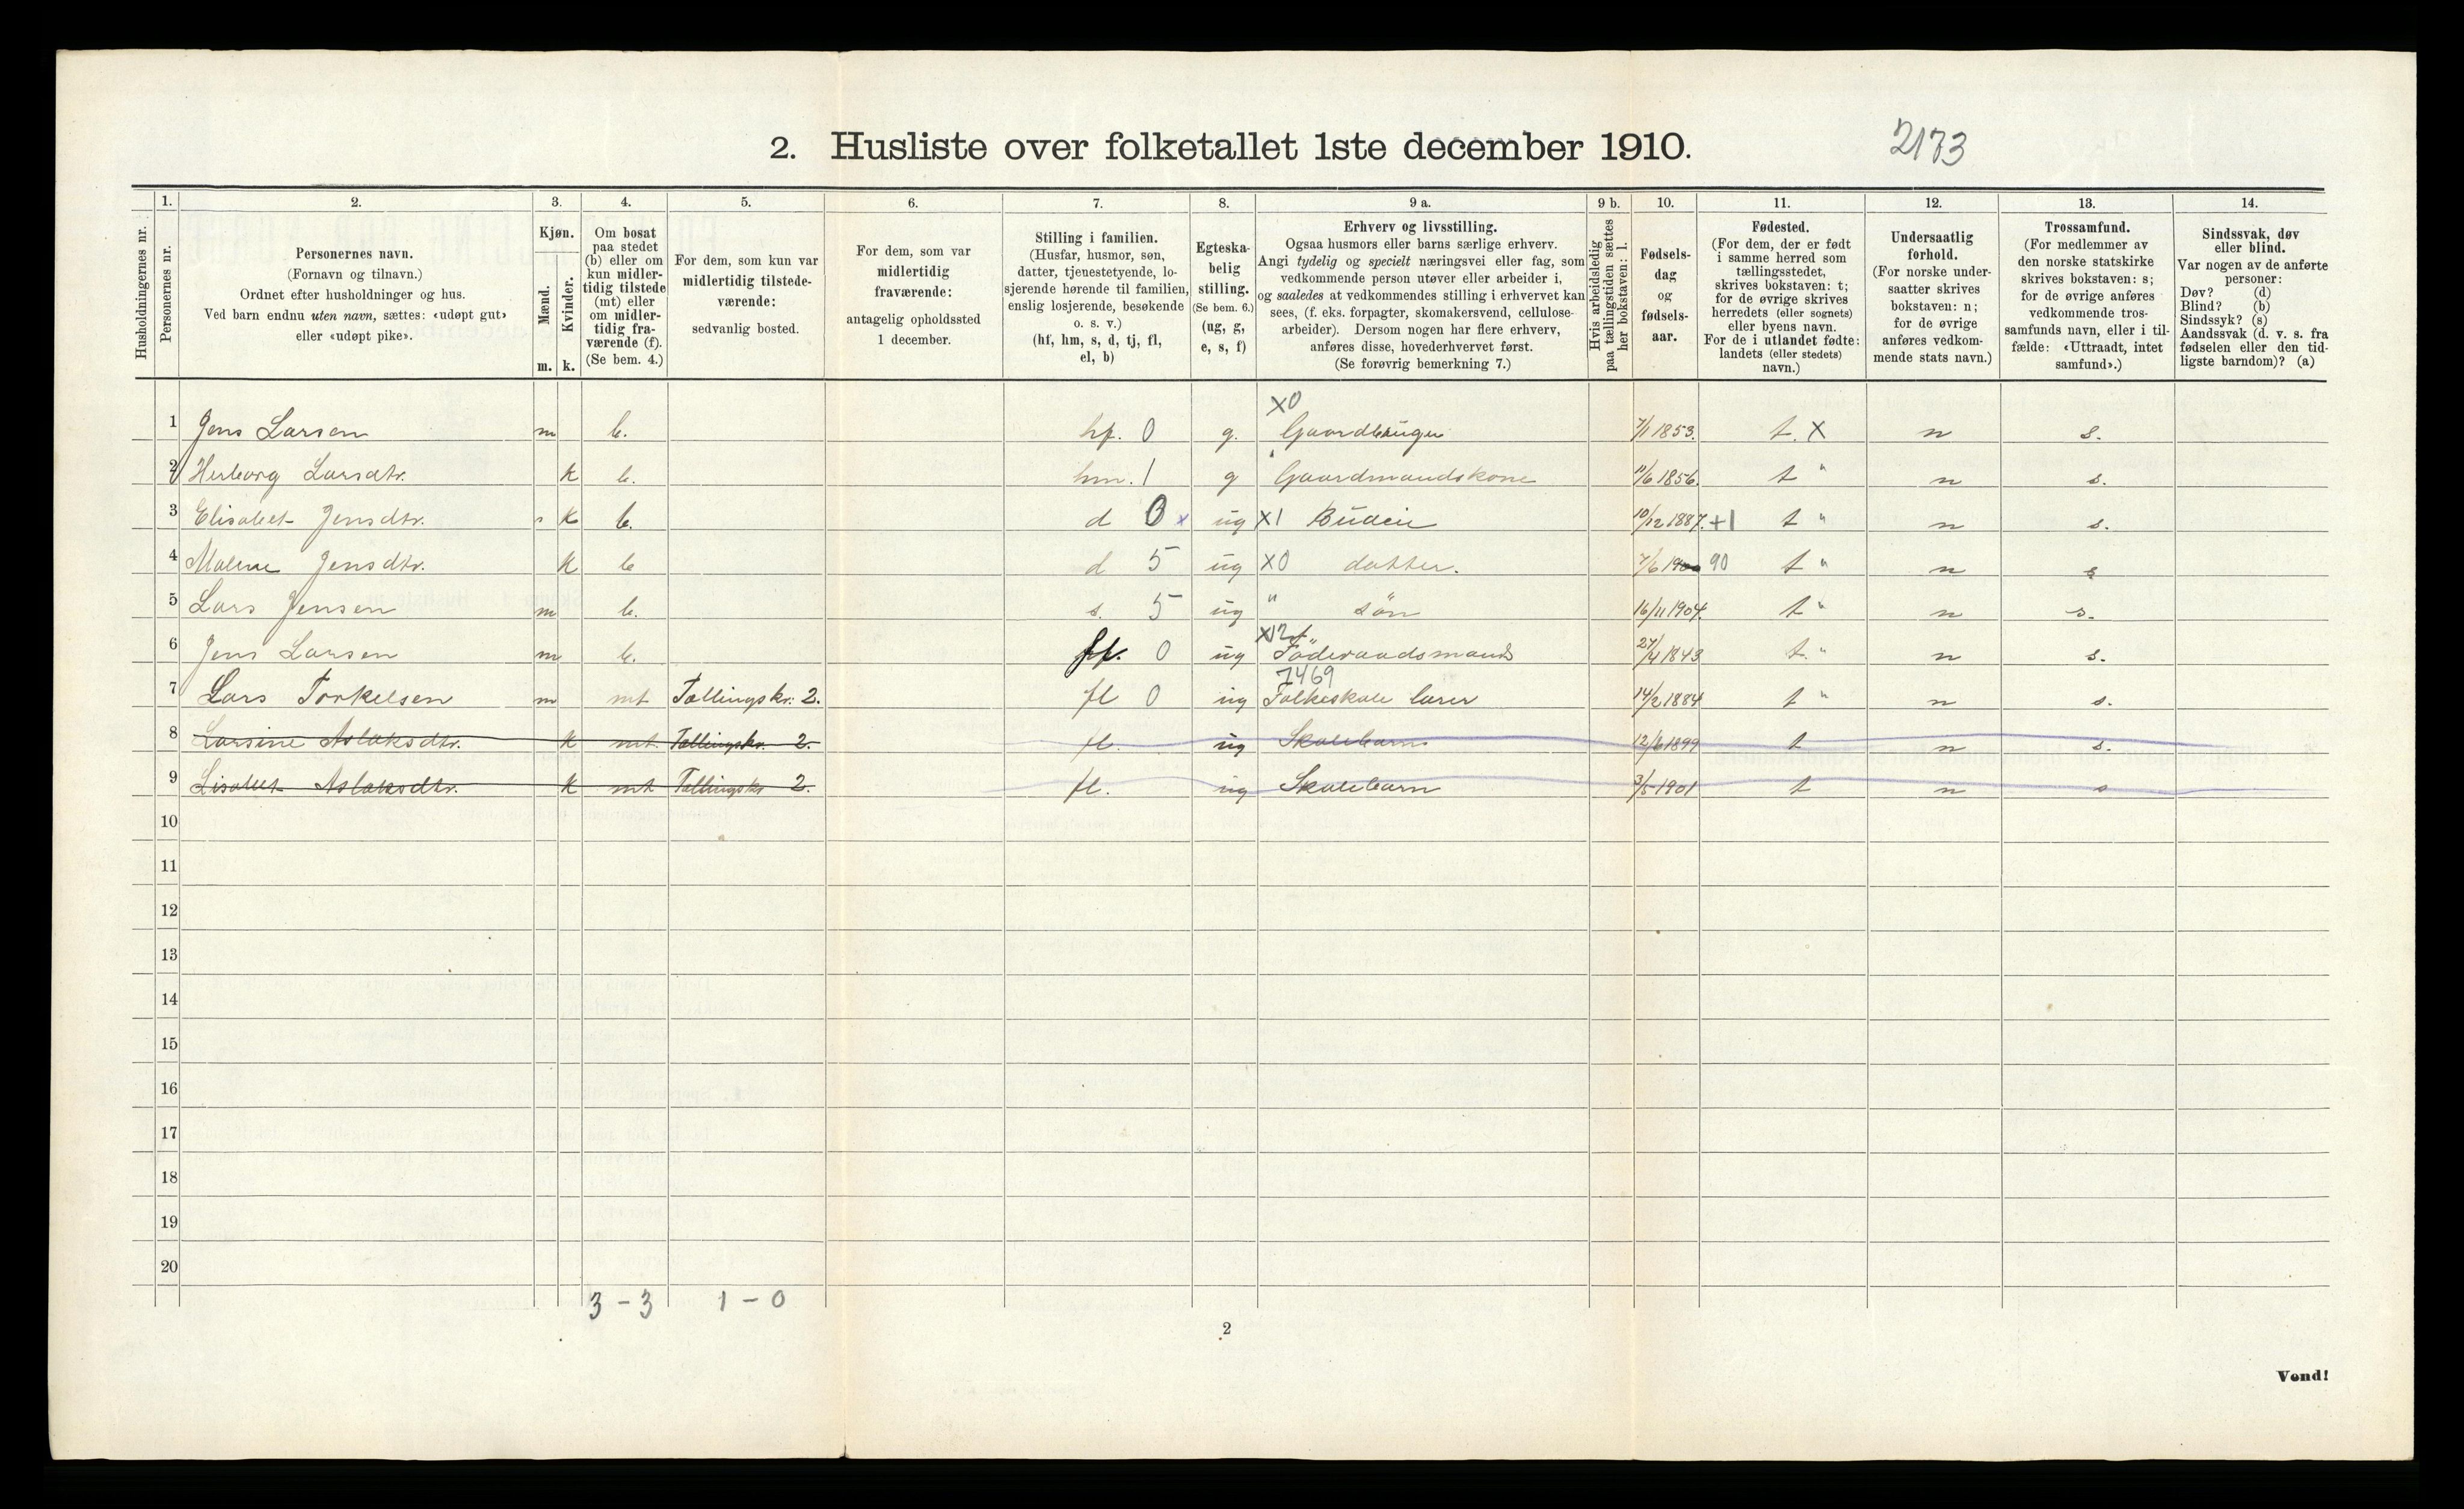 2. Husliste over folketallet 1ste december 1910.
2173
1. 2. 3. 4. 5. 6. 7. 8. 9 a. 9 b. 10. 11. 12. 13. 14.
Husholdningernes nr.
Personernes nr.
Personernes navn.
(Fornavn og tilnavn.)
Ordnet efter husholdninger og hus.
Ved barn endnu uten navn, sættes: «udøpt gut»
eller «udøpt pike».
Kjøn.
Mænd.
Kvinder.
m. k.
Om bosat
paa stedet
(b) eller om
kun midler-
tidig tilstede
(mt) eller
om midler-
tidig fra-
værende (f).
(Se bem. 4.)
For dem, som kun var
midlertidig tilstede-
værende:
sedvanlig bosted.
For dem, som var
midlertidig
fraværende:
antagelig opholdssted
1 december.
Stilling i familien.
(Husfar, husmor, søn,
datter, tjenestetyende, lo-
sjerende hørende til familien,
enslig losjerende, besøkende
o. s. v.)
(hf, hm, s, d, tj, fl,
el, b)
Egteska-
belig
stilling.
(Se bem. 6.)
(ug, g,
e, s, f)
Erhverv og livsstilling.
Ogsaa husmors eller barns særlige erhverv.
Angi tydelig og specielt næringsvei eller fag, som
vedkommende person utøver eller arbeider i,
og saaledes at vedkommendes stilling i erhvervet kan
sees, (f. eks. forpagter, skomakersvend, cellulose-
arbeider). Dersom nogen har flere erhverv,
anføres disse, hovederhvervet først.
(Se forøvrig bemerkning 7.)
Hvis arbeidsledig
paa tællingstiden sættes
her bokstaven: l.
Fødsels-
dag
og
fødsels-
aar.
Fødested.
(For dem, der er født
i samme herred som
tællingsstedet,
skrives bokstaven: t;
for de øvrige skrives
herredets (eller sognets)
eller byens navn.
For de i utlandet fødte:
landets (eller stedets)
navn.)
Undersaatlig
forhold.
(For norske under-
saatter skrives
bokstaven: n;
for de øvrige
anføres vedkom-
mende stats navn.)
Trossamfund.
(For medlemmer av
den norske statskirke
skrives bokstaven: s;
for de øvrige anføres
vedkommende tros-
samfunds navn, eller i til-
fælde: «Uttraadt, intet
samfund».)
Sindssvak, døv
eller blind.
Var nogen av de anførte
personer:
Døv? (d)
Blind? (b)
Sindssyk? (s)
Aandssvak (d. v. s. fra
fødselen eller den tid-
ligste barndom)? (a)
X0
1 Jens Larsen m b. hf. 0 g. Gaardbruger 7/1 1853. t. X n s.
2 Herborg Larsdtr. k b. hm. 1 g Gaardmandskone 11/6 1856. t " n s.
3 Elisabet Jensdtr. k b. d 0 x ug X1 Budeie 10/12 1887. +1 t " n s.
4 Malene Jensdtr. k b d 5 ug X0 datter. 7/6 1900 90 t " n s
5 Lars Jensen m b. s. 5 ug " søn 16/11 1904. t " n s.
X12
6 Jens Larsen m b. ff. 0 ug Føderaadsmand 27/4 1843 t. " n s.
7469
7 Lars Torkelsen m mt Tællingskr: 2. fl 0 ug Folkeskole lærer 14/2 1884 t " n s.
8 Larsine Aslaksdtr. k mt. Tællingskr. 2. fl. ug Skolebarn 12/6 1899 t n s.
9 Lisabet Aslaksdtr. k mt Tællingskr 2. fl. ug Skolebarn 3/5 1901 t n s
10
11
12
13
14
15
16
17
18
19
20
3 - 3 1 - 0
2
Vend!